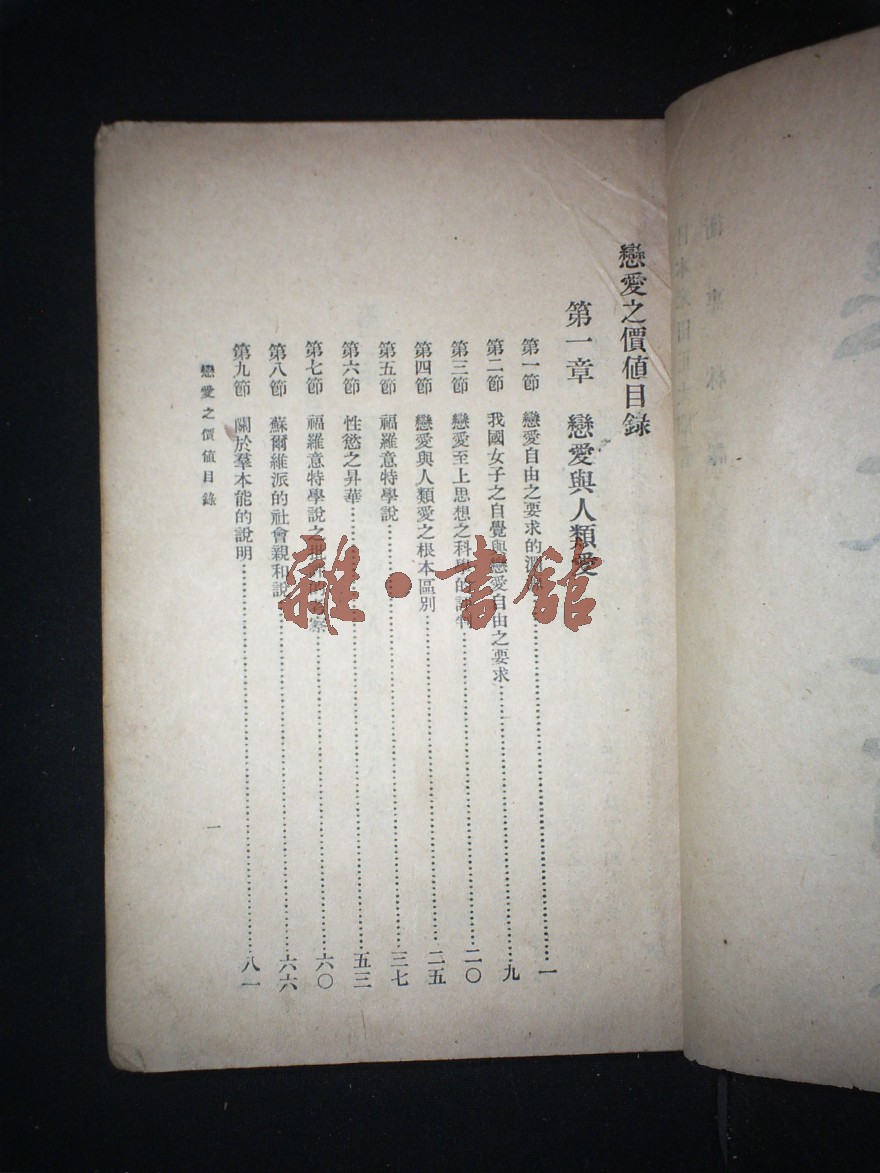 戀愛之價値目錄
第一章 戀愛與人類愛
第一節 戀愛自由之要求的……一
第二節 我國女子之自覺與戀愛自由之要求……九
第三節 戀愛至上思想之科學的……二〇
第四節 戀愛與人類愛之根本區別……二五
第五節 福羅意特學說……三七
第六節 性慾之昇華……五三
第七節 福羅意特學說之批評的考察……六〇
第八節 蘇爾維派的社會親和說……六六
第九節 關於羣本能的說明……八一
戀愛之價値目錄
一
雜·書館